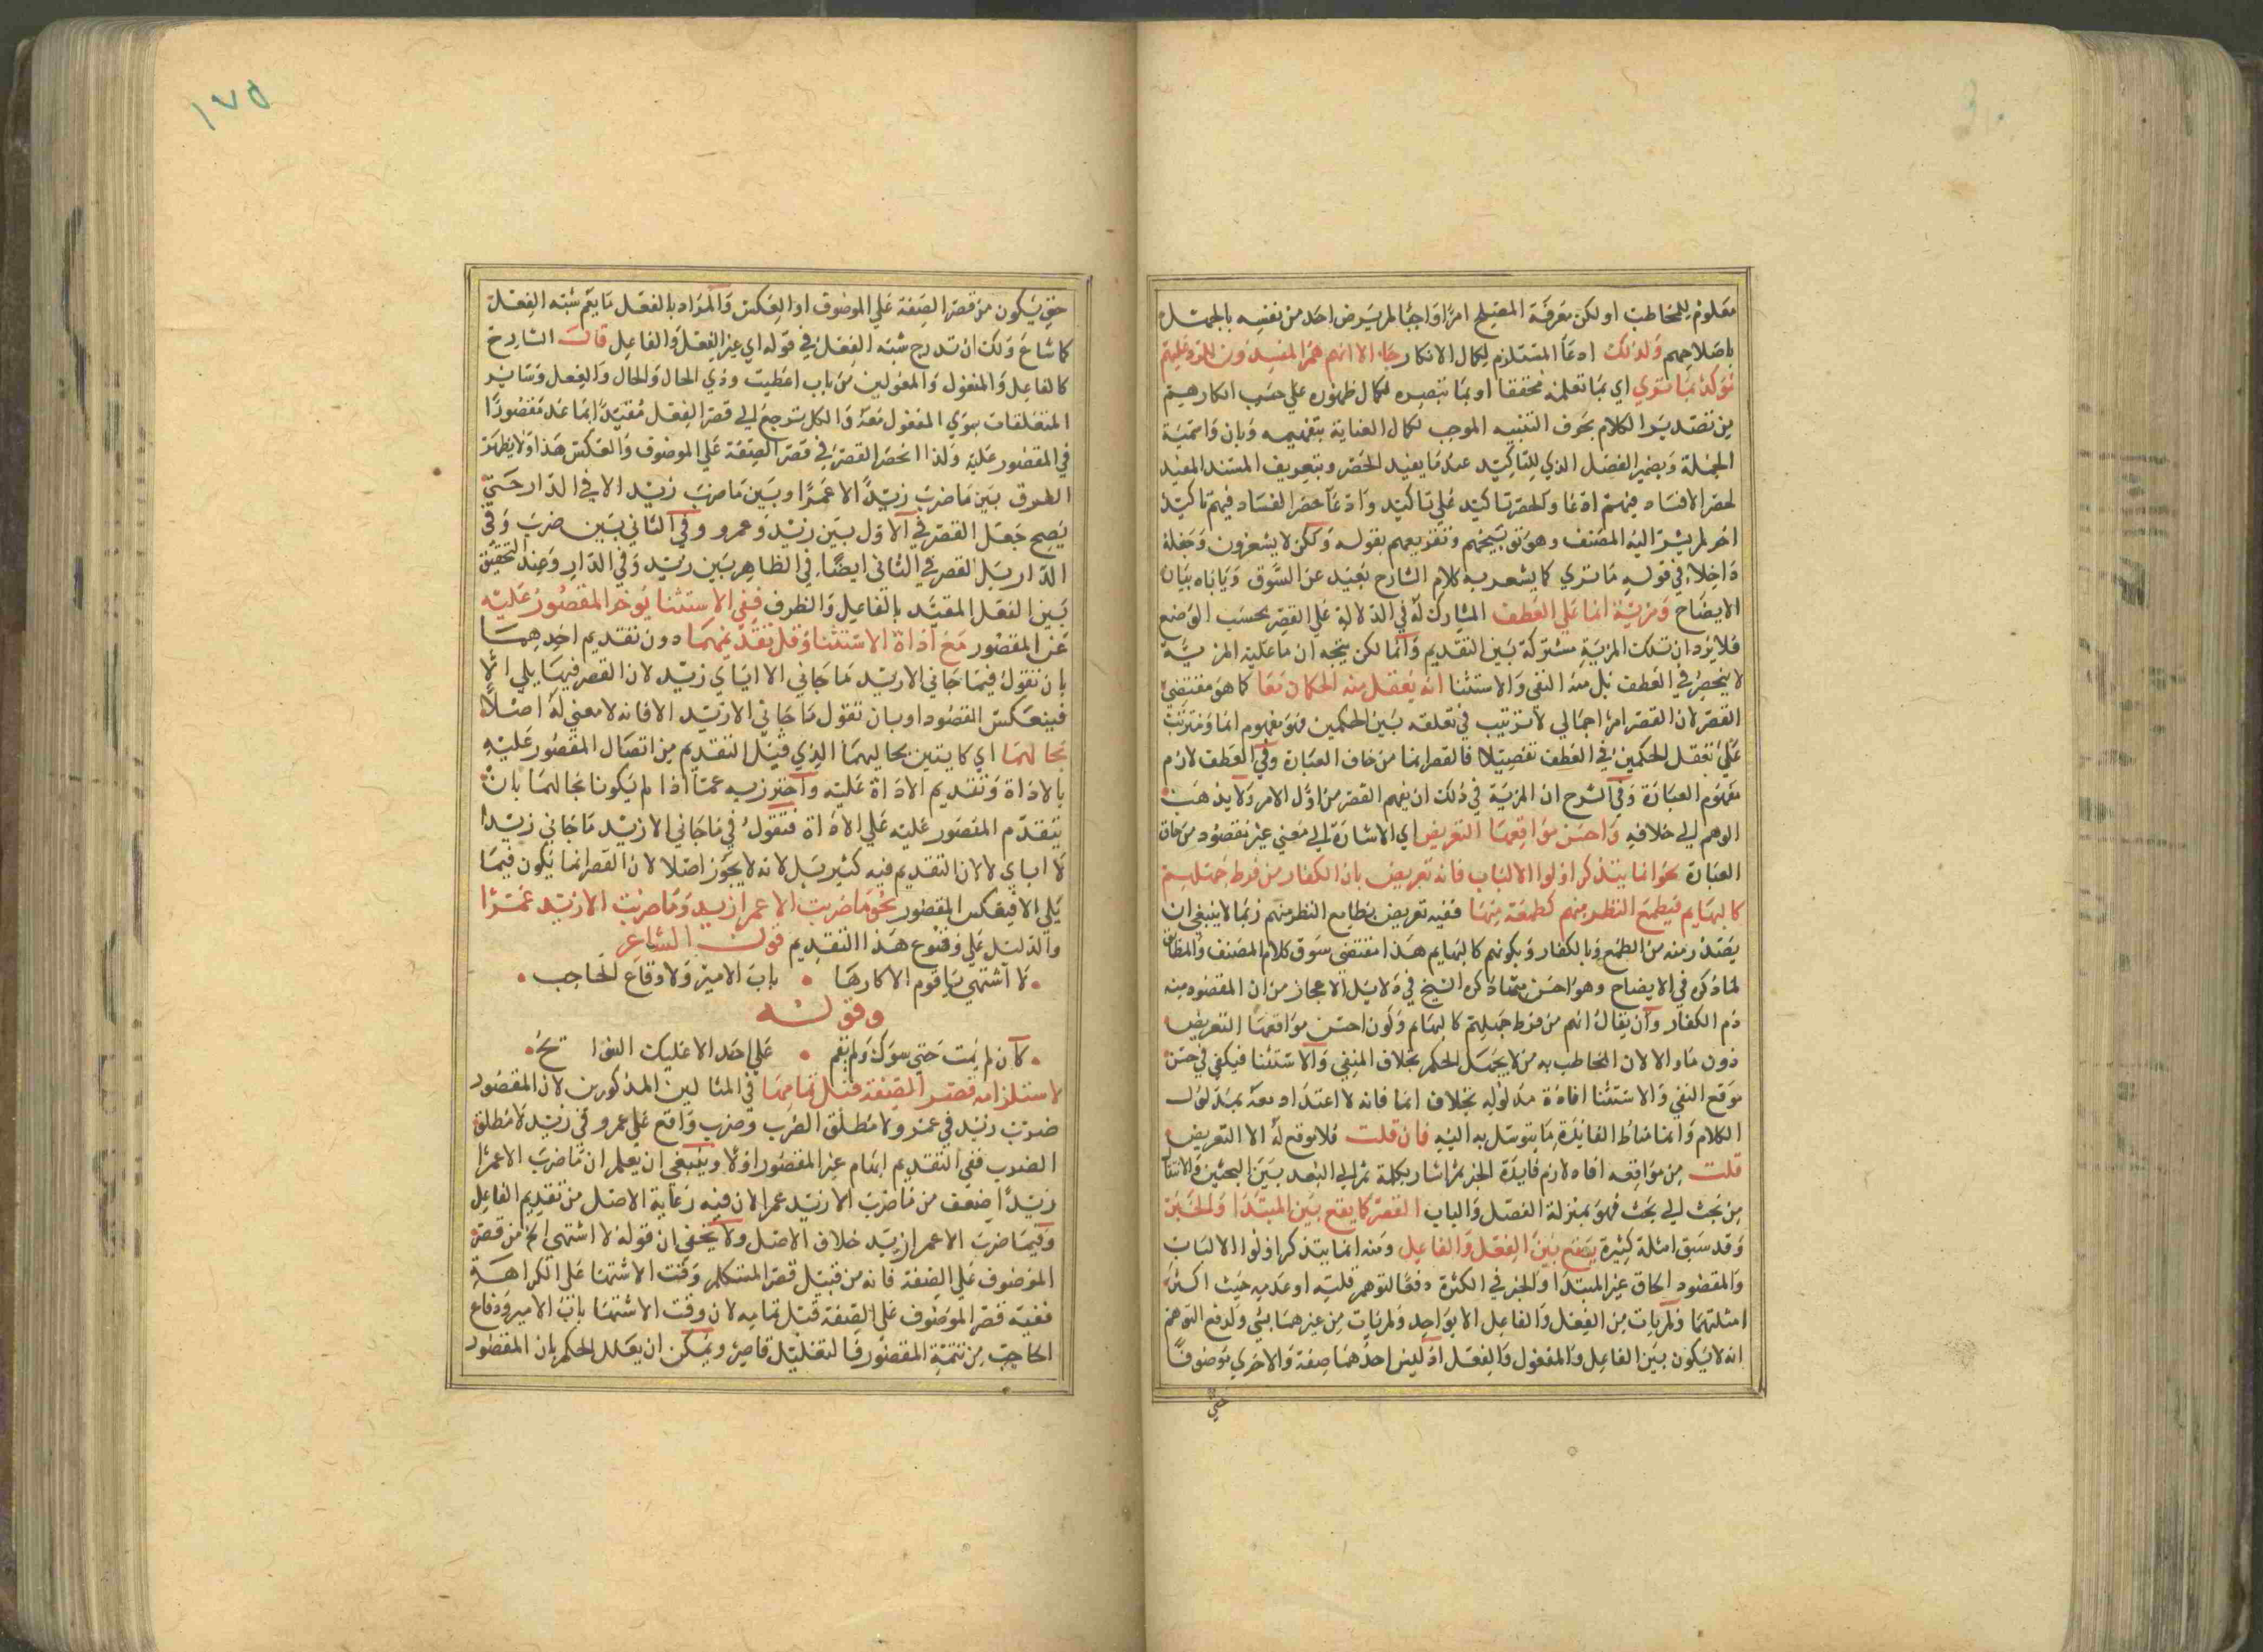 معلوم للمخاطب او لكن معرفة المصلح امرا واجبا لم يرض احد من نفسه بالجهل
باصلاحهم ولذلك ادعا المستلزم لكمال الانكار جاء الا انهم هم المفسدون للرد عليهم
مؤكدا بما ترى اي بما تعلمه محققا او بما تبصره لكمال ظهوره على حسب انكارهم
من تصدير الكلام بحرف التنبيه الموجب لكمال العناية بتفهيمه وبان واسمية
الجملة وبضمير الفصل الذي للتاكيد عند ما يفيد الحصر وبتعريف المسند المفيد
لحصر الافساد فيهم ادعا والحصر تاكيد على تاكيد وادعا حصر الفساد فيهم تاكيد
اخر لم يشر اليه المصنف وهو توبيخهم وتقريعهم بقوله ولكن لا يشعرون وجعله
داخلا في قوله ما ترى كما يشعر به كلام الشارح بعيد عن السوق ويأباه بيان
الايضاح ومزية انما على العطف المشارك له في الدلالة على القصر بحسب الوضع
فلا يرد ان تلك المزية مشتركة بين التقديم وانما لكن يتجه ان ما عليه المزية
لا ينحصر في العطف بل منه النفي والاستثنا انه يعقل منه الحكمان معا كما هو مقتضى
القصر لان القصر امر اجمالي لا ترتيب في تعلقه بين الحكمين فهو مفهوم انما ومترتب
على تعقل الحكمين في العطف تفصيلا فالقصر انما من حاق العبارة وفي العطف لازم
مفهوم العبارة وفي الشرح ان المزية في ذلك ان يفهم القصر من اول الامر ولا يذهب
الوهم الى خلافه واحسن مواقعها التعريض اي الاشارة الى معنى غير مقصود من حاق
العبارة نحو انما يتذكر اولوا الالباب فانه تعريض بان الكفار من فرط جهلهم
كالبهايم فيطمع النظر منهم كطمعه منها ففيه تعريض بطامع النظر منهم ربما لا ينبغي ان
يصدر منه من الطمع وبالكفار وبكونهم كالبهايم هذا مقتضى سوق كلام المصنف والمطابق
لما ذكره في الايضاح وهو احسن مما ذكره الشيخ في دلايل الاعجاز من ان المقصود منه
ذم الكفار وان يقال انهم من فرط جهلهم كالبهايم وكون احسن مواقعها التعريض
دون ما والا لان المخاطب به من لا يجهل الحكم بخلاف المنفي والاستثنا فيكفي في حسن
موقع النفي والاستثنا افادة مدلوله بخلاف انما فانه لا اعتداد معه بمدلول
الكلام وانما مناط الفايدة ما يتوسل به اليه فان قلت فلا موقع له الا التعريض
قلت من مواقعه افاده لازم فايدة الخبر ثم اشار بكلمة ثم الى البعد بين البحثين والانتقا
من بحث الى بحث فهو بمنزلة الفصل والباب القصر كما يقع بين المبتدا والخبر
وقد سبق امثلة كثيرة يقع بين الفعل والفاعل ومنه انما يتذكر اولوا الالباب
والمقصود الحاق غير المبتدا والخبر في الكثرة دفعا لتوهم قلته او عدمه حيث اكثر
امثلتهما ولم يات من الفعل والفاعل الا بواحد ولم يات من غيرهما بشي ولدفع التوهم
انه لا يكون بين الفاعل والمفعول والفعل اذ ليس احدهما صفة والاخرى موصوفا
حتى
١٧٥
حتى يكون من قصر الصفة على الموصوف او العكس والمراد بالفعل ما يعم شبه الفعل
كما شاع ولك ان تدرج شبه الفعل في قوله اي غير الفعل والفاعل قال الشارح
كالفاعل والمفعول والمفعولين من باب اعطيت وذي الحال والحال والفعل وساير
المتعلقات سوى المفعول معه والكل يرجع الى قصر الفعل مقيدا بما عد مقصورا
في المقصور عليه ولذا انحصر القصر في قصر الصفة على الموصوف والعكس هذا ولا يظهر
الفرق بين ما ضرب زيد الا عمرا وبين ما ضرب زيد الا في الدار حتى
يصح جعل القصر في الاول بين زيد وعمرو وفي الثاني بين ضرب وفي
الدار بل القصر في الثاني ايضا في الظاهر بين زيد وفي الدار وعند التحقيق
بين الفعل المقيد بالفاعل والظرف ففي الاستثنا يوخر المقصور عليه
عن المقصور مع اداة الاستثنا وقل تقديمهما دون تقديم احدهما
بان تقول فيما جاني الا زيد ما جاني الا اياي زيد لان القصر فيما يلي الا
فينعكس المقصود او بان تقول ما جاني الا زيد الا فانه لا معنى له اصلا
بحالهما اي كاينين بحالهما الذي قبل التقديم من اتصال المقصور عليه
بالاداة وتقديم الاداة عليه واحترز به عما اذا لم يكونا بحالهما بان
يتقدم المقصور عليه على الاداة فتقول في ما جاني الا زيد ما جاني زيد الا
لا اياي لا لان التقديم فيه كثير بل لانه لا يجوز اصلا لان القصر انما يكون فيما
يلي الا فينعكس المقصور نحو ما ضرب الا عمرا زيد وما ضرب الا زيد عمرا
والدليل على وقوع هذا التقديم قول الشاعر
لا اشتهي يا قوم الا كارها باب الامير ولا دفاع الحاجب
وقوله
كان لم يمت حي سواك ولم تقم على احد الا عليك النوائح
لاستلزامه قصر الصفة قبل تمامها في المثالين المذكورين لان المقصور
ضرب زيد في عمرو لا مطلق الضرب وضرب واقع على عمرو في زيد لا مطلق
الضرب ففي التقديم ايهام غير المقصور اولا وينبغي ان يعلم ان ما ضرب الا عمرا
زيد اضعف من ما ضرب الا زيد عمرا لان فيه رعاية الاصل من تقديم الفاعل
وفيما ضرب الا عمرا زيد خلاف الاصل ولا يخفى ان قوله لا اشتهي الخ من قصر
الموصوف على الصفة فانه من قبيل قصر المتكلم وقت الاشتها على الكراهة
ففيه قصر الموصوف على الصفة قبل تمامه لان وقت الاشتها باب الامير ودفاع
الحاجب من تتمة المقصور فالتعليل قاصر ويمكن ان يعلل الحكم بان المقصور